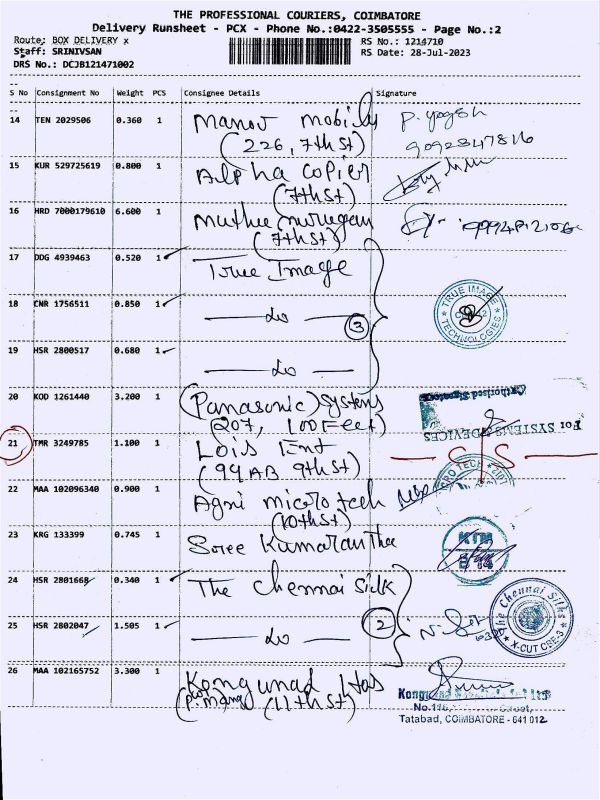 THE PROFESSIONAL COURIERS, COIMBATORE
Delivery Runsheet - PCX - Phone No.:0422-3505555 - Page No.:2
Route: BOX DELIVERY x
RS No.: 1214710
Staff: SRINIVSAN
RS Date: 28-Jul-2023
DRS No.: DCJB121471002
S No Consignment No Weight PCS Consignee Details Signature
14 TEN 2029506 0.360 1 Manov mobiles P. yogesh
(226, 7th st)
15 KUR 529725619 0.800 1 Alpha copier
(7th st)
16 HRD 7000179610 6.600 1 Muthu murugan
(7th st)
17 DDG 4939463 0.520 1 True Image
18 CNR 1756511 0.850 1 — do —
3
TRUE IMAGE
TECHNOLOGIES
19 HSR 2800517 0.680 1 — do —
20 KOD 1261440 3.200 1 (Panasonic) systems
(207, 100 Feet)
Authorised Signatory
For SYSTEMS & DEVICES
21 TMR 3249785 1.100 1 Lois Ent
(99AB 9th st)
22 MAA 102096340 0.900 1 Agni micro tech
(10th st)
23 KRG 133399 0.745 1 Sree Kumaran Thee
KTM
24 HSR 2801668 0.340 1 The Chennai Silk
25 HSR 2802047 1.505 1 — do —
2
The Chennai Silks
X-CUT CBE-3
26 MAA 102165752 3.300 1 Kongunad Hos
(11th st)
Tatabad, COIMBATORE - 641 012.